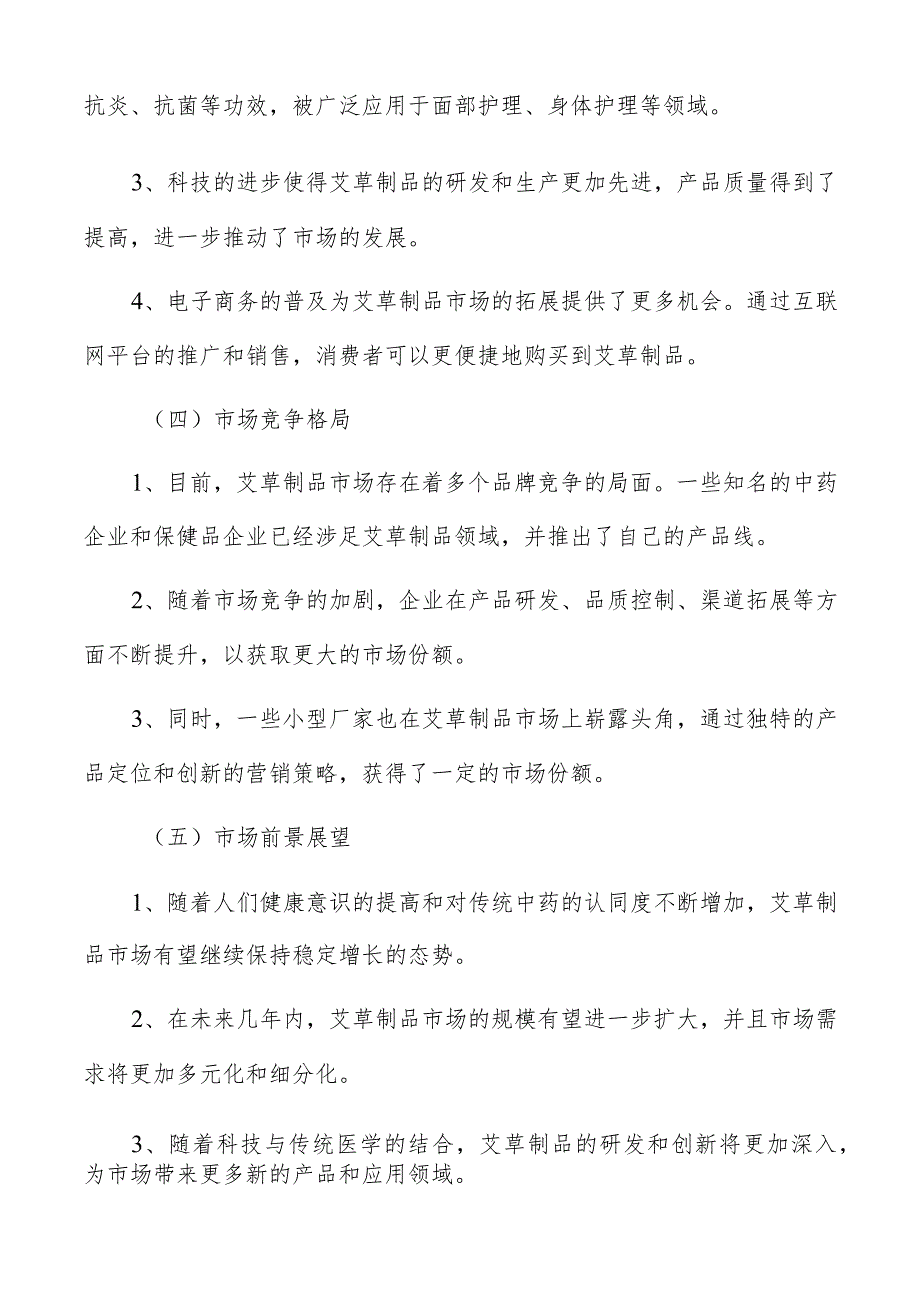 抗炎、抗菌等功效，被广泛应用于面部护理、身体护理等领域。
3、科技的进步使得艾草制品的研发和生产更加先进，产品质量得到了
提高，进一步推动了市场的发展。
4、电子商务的普及为艾草制品市场的拓展提供了更多机会。通过互联
网平台的推广和销售，消费者可以更便捷地购买到艾草制品。
（四）市场竞争格局
1、目前，艾草制品市场存在着多个品牌竞争的局面。一些知名的中药
企业和保健品企业已经涉足艾草制品领域，并推出了自己的产品线。
2、随着市场竞争的加剧，企业在产品研发、品质控制、渠道拓展等方
面不断提升，以获取更大的市场份额。
3、同时，一些小型厂家也在艾草制品市场上崭露头角，通过独特的产
品定位和创新的营销策略，获得了一定的市场份额。
（五）市场前景展望
1、随着人们健康意识的提高和对传统中药的认同度不断增加，艾草制
品市场有望继续保持稳定增长的态势。
2、在未来几年内，艾草制品市场的规模有望进一步扩大，并且市场需
求将更加多元化和细分化。
3、随着科技与传统医学的结合，艾草制品的研发和创新将更加深入，
为市场带来更多新的产品和应用领域。